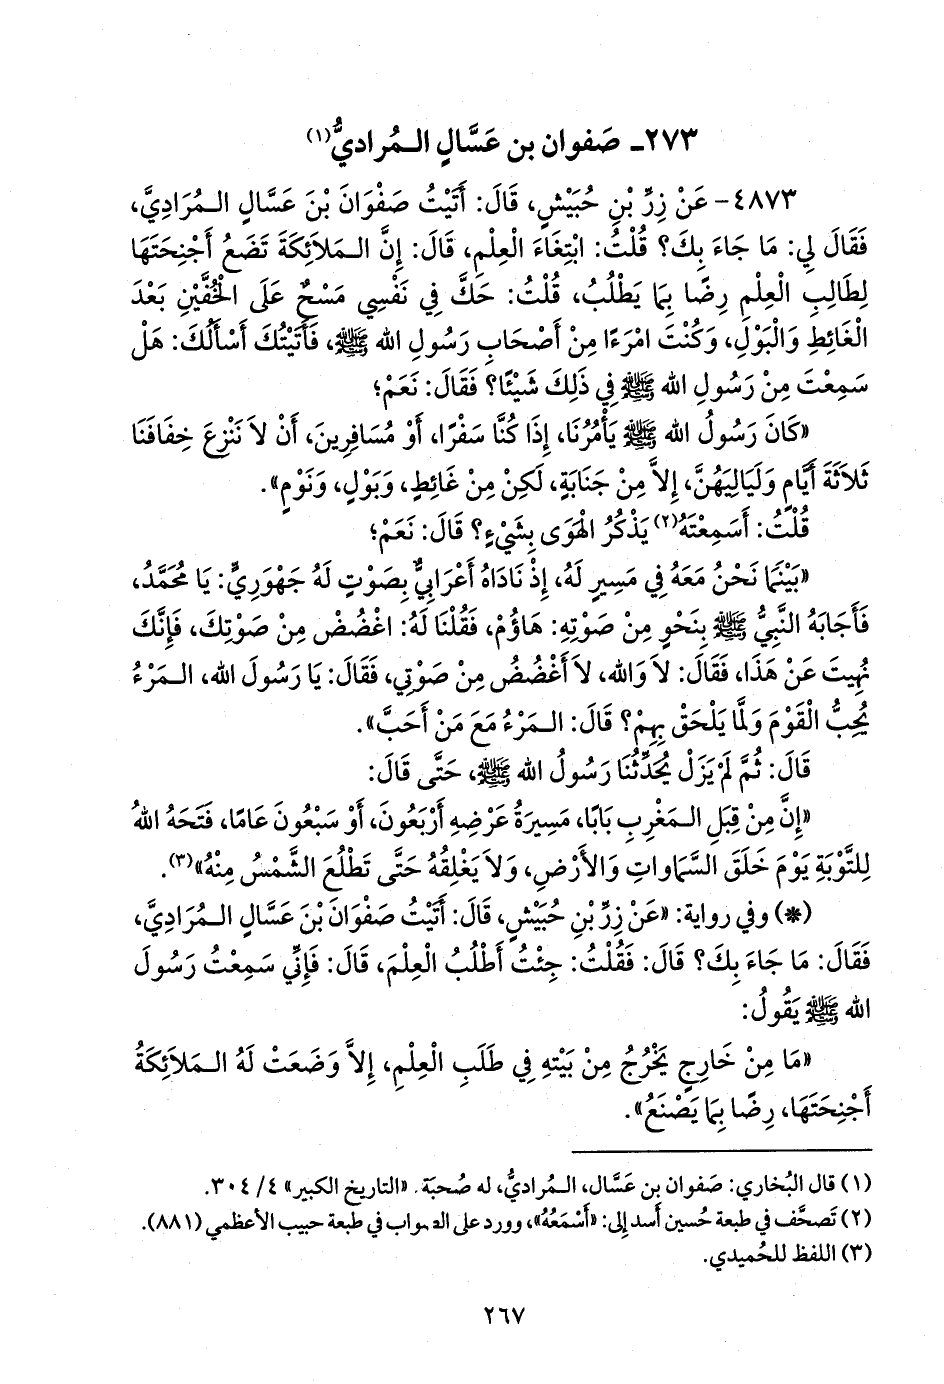 ٢٧٣ـ صَفوان بن عَسَّالٍ الـمُراديُّ(١)
٤٨٧٣- عَنْ زِرِّ بْنِ حُبَيْشٍ، قَالَ: أَتَيْتُ صَفْوَانَ بْنَ عَسَّالٍ الـمُرَادِيَّ،
فَقَالَ لِي: مَا جَاءَ بِكَ؟ قُلْتُ: ابْتِغَاءَ الْعِلْمِ، قَالَ: إِنَّ الـمَلاَئِكَةَ تَضَعُ أَجْنِحَتَهَا
لِطَالِبِ الْعِلْمِ رِضًا بِمَا يَطْلُبُ، قُلْتُ: حَكَّ فِي نَفْسِي مَسْحٌ عَلَى الْخُفَّيْنِ بَعْدَ
الْغَائِطِ وَالْبَوْلِ، وَكُنْتَ امْرَءًا مِنْ أَصْحَابِ رَسُولِ الله ﷺ، فَأَتَيْتُكَ أَسْأَلُكَ: هَلْ
سَمِعْتَ مِنْ رَسُولِ الله ﷺ فِي ذَلِكَ شَيْئًا؟ فَقَالَ: نَعَمْ؛
«كَانَ رَسُولُ الله ﷺ يَأْمُرُنَا، إِذَا كُنَّا سَفْرًا، أَوْ مُسَافِرِينَ، أَنْ لاَ نَنْزِعَ خِفَافَنَا
ثَلاَثَةَ أَيَّامٍ وَلَيَالِيَهُنَّ، إِلاَّ مِنْ جَنَابَةٍ، لَكِنْ مِنْ غَائِطٍ، وَبَوْلٍ، وَنَوْمٍ».
قُلْتُ: أَسَمِعْتَهُ(٢) يَذْكُرُ الْهَوَى بِشَيْءٍ؟ قَالَ: نَعَمْ؛
«بَيْنَمَا نَحْنُ مَعَهُ فِي مَسِيرٍ لَهُ، إِذْ نَادَاهُ أَعْرَابِيٌّ بِصَوْتٍ لَهُ جَهْوَرِيٍّ: يَا مُحَمَّدُ،
فَأَجَابَهُ النَّبِيُّ ﷺ بِنَحْوٍ مِنْ صَوْتِهِ: هَاؤُمْ، فَقُلْنَا لَهُ: اغْضُضْ مِنْ صَوْتِكَ، فَإِنَّكَ
نُهِيتَ عَنْ هَذَا، فَقَالَ: لاَ وَالله، لاَ أَغْضُضُ مِنْ صَوْتِي، فَقَالَ: يَا رَسُولَ الله، الـمَرْءُ
يُحِبُّ الْقَوْمَ وَلَمَّا يَلْحَقْ بِهِمْ؟ قَالَ: الـمَرْءُ مَعَ مَنْ أَحَبَّ».
قَالَ: ثُمَّ لَمْ يَزَلْ يُحَدِّثُنَا رَسُولُ الله ﷺ، حَتَّى قَالَ:
«إِنَّ مِنْ قِبَلِ الـمَغْرِبِ بَابًا، مَسِيرَةُ عَرْضِهِ أَرْبَعُونَ، أَوْ سَبْعُونَ عَامًا، فَتَحَهُ اللهُ
لِلتَّوْبَةِ يَوْمَ خَلَقَ السَّمَاوَاتِ وَالأَرْضِ، وَلاَ يَغْلِقُهُ حَتَّى تَطْلُعَ الشَّمْسُ مِنْهُ»(٣).
(*) وفي رواية: «عَنْ زِرِّ بْنِ حُبَيْشٍ، قَالَ: أَتَيْتُ صَفْوَانَ بْنَ عَسَّالٍ الـمُرَادِيَّ،
فَقَالَ: مَا جَاءَ بِكَ؟ قَالَ: فَقُلْتُ: جِئْتُ أَطْلُبُ الْعِلْمَ، قَالَ: فَإِنِّي سَمِعْتُ رَسُولَ
الله ﷺ يَقُولُ:
«مَا مِنْ خَارِجٍ يَخْرُجُ مِنْ بَيْتِهِ فِي طَلَبِ الْعِلْمِ، إِلاَّ وَضَعَتْ لَهُ الـمَلاَئِكَةُ
أَجْنِحَتَهَا، رِضًا بِمَا يَصْنَعُ».
(١) قال البُخاري: صَفوان بن عَسَّال، الـمُراديُّ، له صُحبَة. «التاريخ الكبير» ٤/ ٣٠٤.
(٢) تَصحَّف في طبعة حُسين أسد إلى: «أَسْمَعُهُ»، وورد على الصواب في طبعة حبيب الأعظمي (٨٨١).
(٣) اللفظ للحُميدي.
٢٦٧